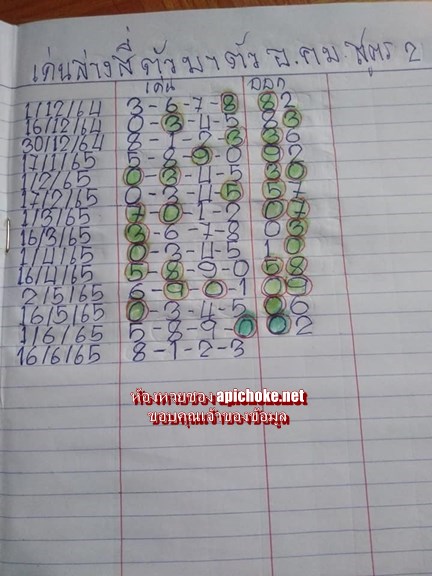 เด่นล่างสี่ตัวมาตัว อ.คม.สูตร 2
เด่น ออก
1/12/64 3-6-7-8 82
16/12/64 0-3-4-5 83
30/12/64 8-1-2-3 36
17/1/65 5-8-9-0 92
1/2/65 0-3-4-5
17/2/65 0-3-4-5 57
1/3/65 7-0-1-2 07
16/3/65 3-6-7-8 03
1/4/65 0-3-4-5 10
16/4/65 5-8-9-0 58
2/5/65 6-9-0-1 09
16/5/65 0-3-4-5 06
1/6/65 5-8-9-0 02
16/6/65 8-1-2-3
ห้องหวยซอง apichoke.net
ขอบคุณเจ้าของข้อมูล